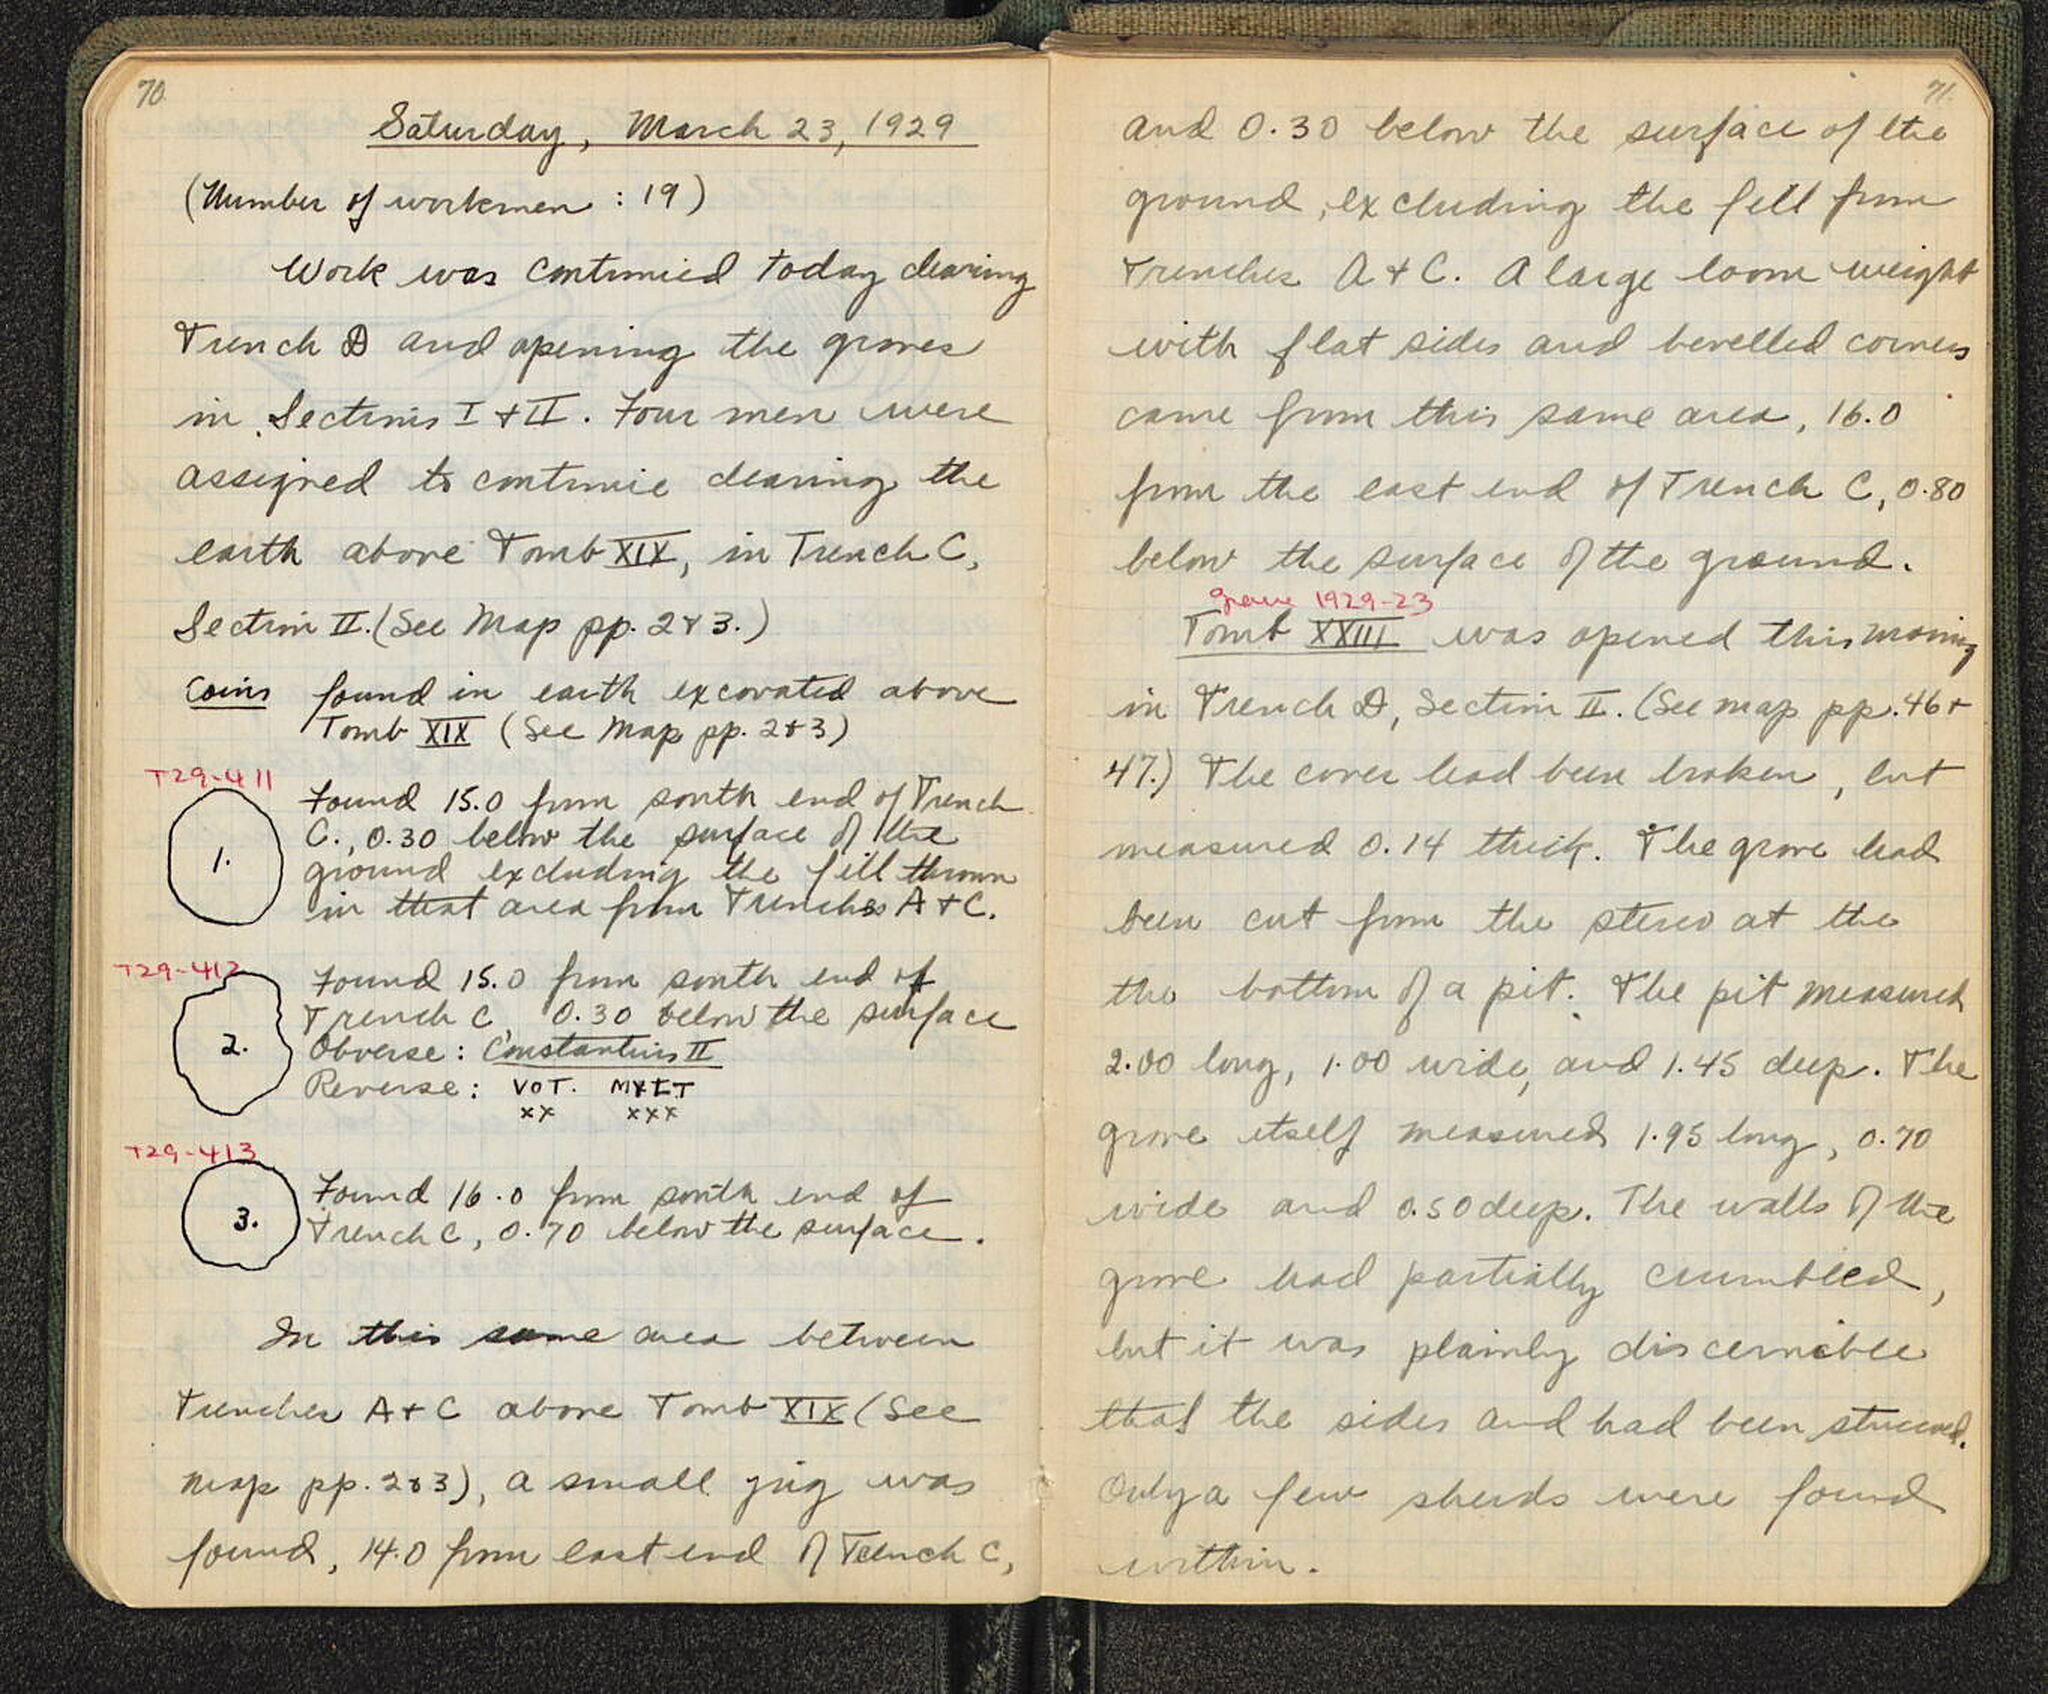 70
Saturday, March 23, 1929
(Number of workmen : 19)
Work was continued today clearing
Trench D and opening the graves
in Sections I + II. Four men were
assigned to continue clearing the
earth above Tomb XIX, in Trench C,
Section II. (See Map pp. 2 & 3.)
Coins found in earth excavated above
Tomb XIX (See Map pp. 2 & 3)
T29-411
1.
Found 15.0 from south end of Trench
C., 0.30 below the surface of the
ground excluding the fill thrown
in that area from Trenches A + C.
T29-412
2.
Found 15.0 from south end of
Trench C, 0.30 below the surface
Obverse: Constantius II
Reverse: VOT. MVLT
xx xxx
T29-413
3.
Found 16.0 from south end of
Trench C, 0.70 below the surface.
In this same area between
Trenches A + C above Tomb XIX (See
Map pp. 2 & 3), a small jug was
found, 14.0 from east end of Trench C,
71.
and 0.30 below the surface of the
ground, excluding the fill from
Trenches A + C. A large loom weight
with flat sides and bevelled corners
came from this same area, 16.0
from the east end of Trench C, 0.80
below the surface of the ground.
Grave 1929-23
Tomb XXIII was opened this morning
in Trench D, Section II. (See map pp. 46 +
47.) The cover had been broken, but
measured 0.14 thick. The grave had
been cut from the stereo at the
the bottom of a pit. The pit measured
2.00 long, 1.00 wide, and 1.45 deep. The
grave itself measured 1.95 long, 0.70
wide and 0.50 deep. The walls of the
grave had partially crumbled,
but it was plainly discernible
that the sides and had been stuccoed.
Only a few sherds were found
within.